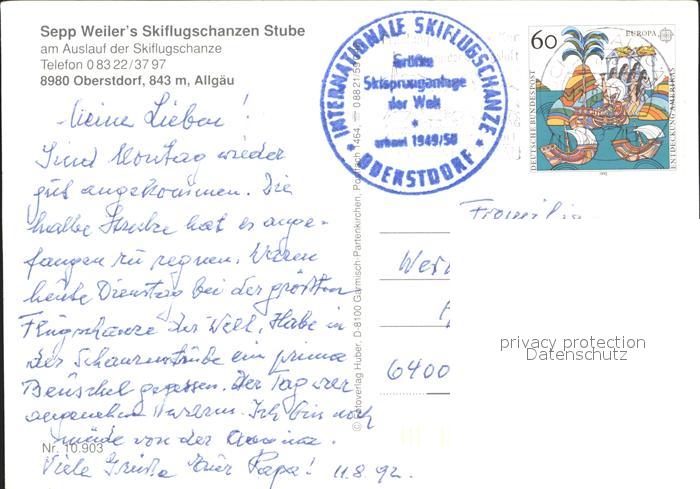 Sepp Weiler's Skiflugschanzen Stube
am Auslauf der Skiflugschanze
Telefon 0 83 22 / 37 97
8980 Oberstdorf, 843 m, Allgäu
Meine Lieben!
Sind Montag wieder
gut angekommen. Die
halbe Strecke hat es ange-
fangen zu regnen. Waren
heute Dienstag bei der größten
Flugschanze der Welt. Habe in
der Schanzenstube ein prima
Beuschel gegessen. Der Tag war
angenehm warm. Ich bin noch
müde von der
Viele Grüße Euer Papa! 11.8.92.
Nr. 10.903
© Fotoverlag Huber, D-8100 Garmisch-Partenkirchen, Postfach 1464,
INTERNATIONALE SKIFLUGSCHANZE
Größte
Skisprunganlage
der Welt
*
erbaut 1949/50
* OBERSTDORF *
60
EUROPA
DEUTSCHE BUNDESPOST
ENTDECKUNG AMERIKAS
1992
Familie
6400
privacy protection
Datenschutz